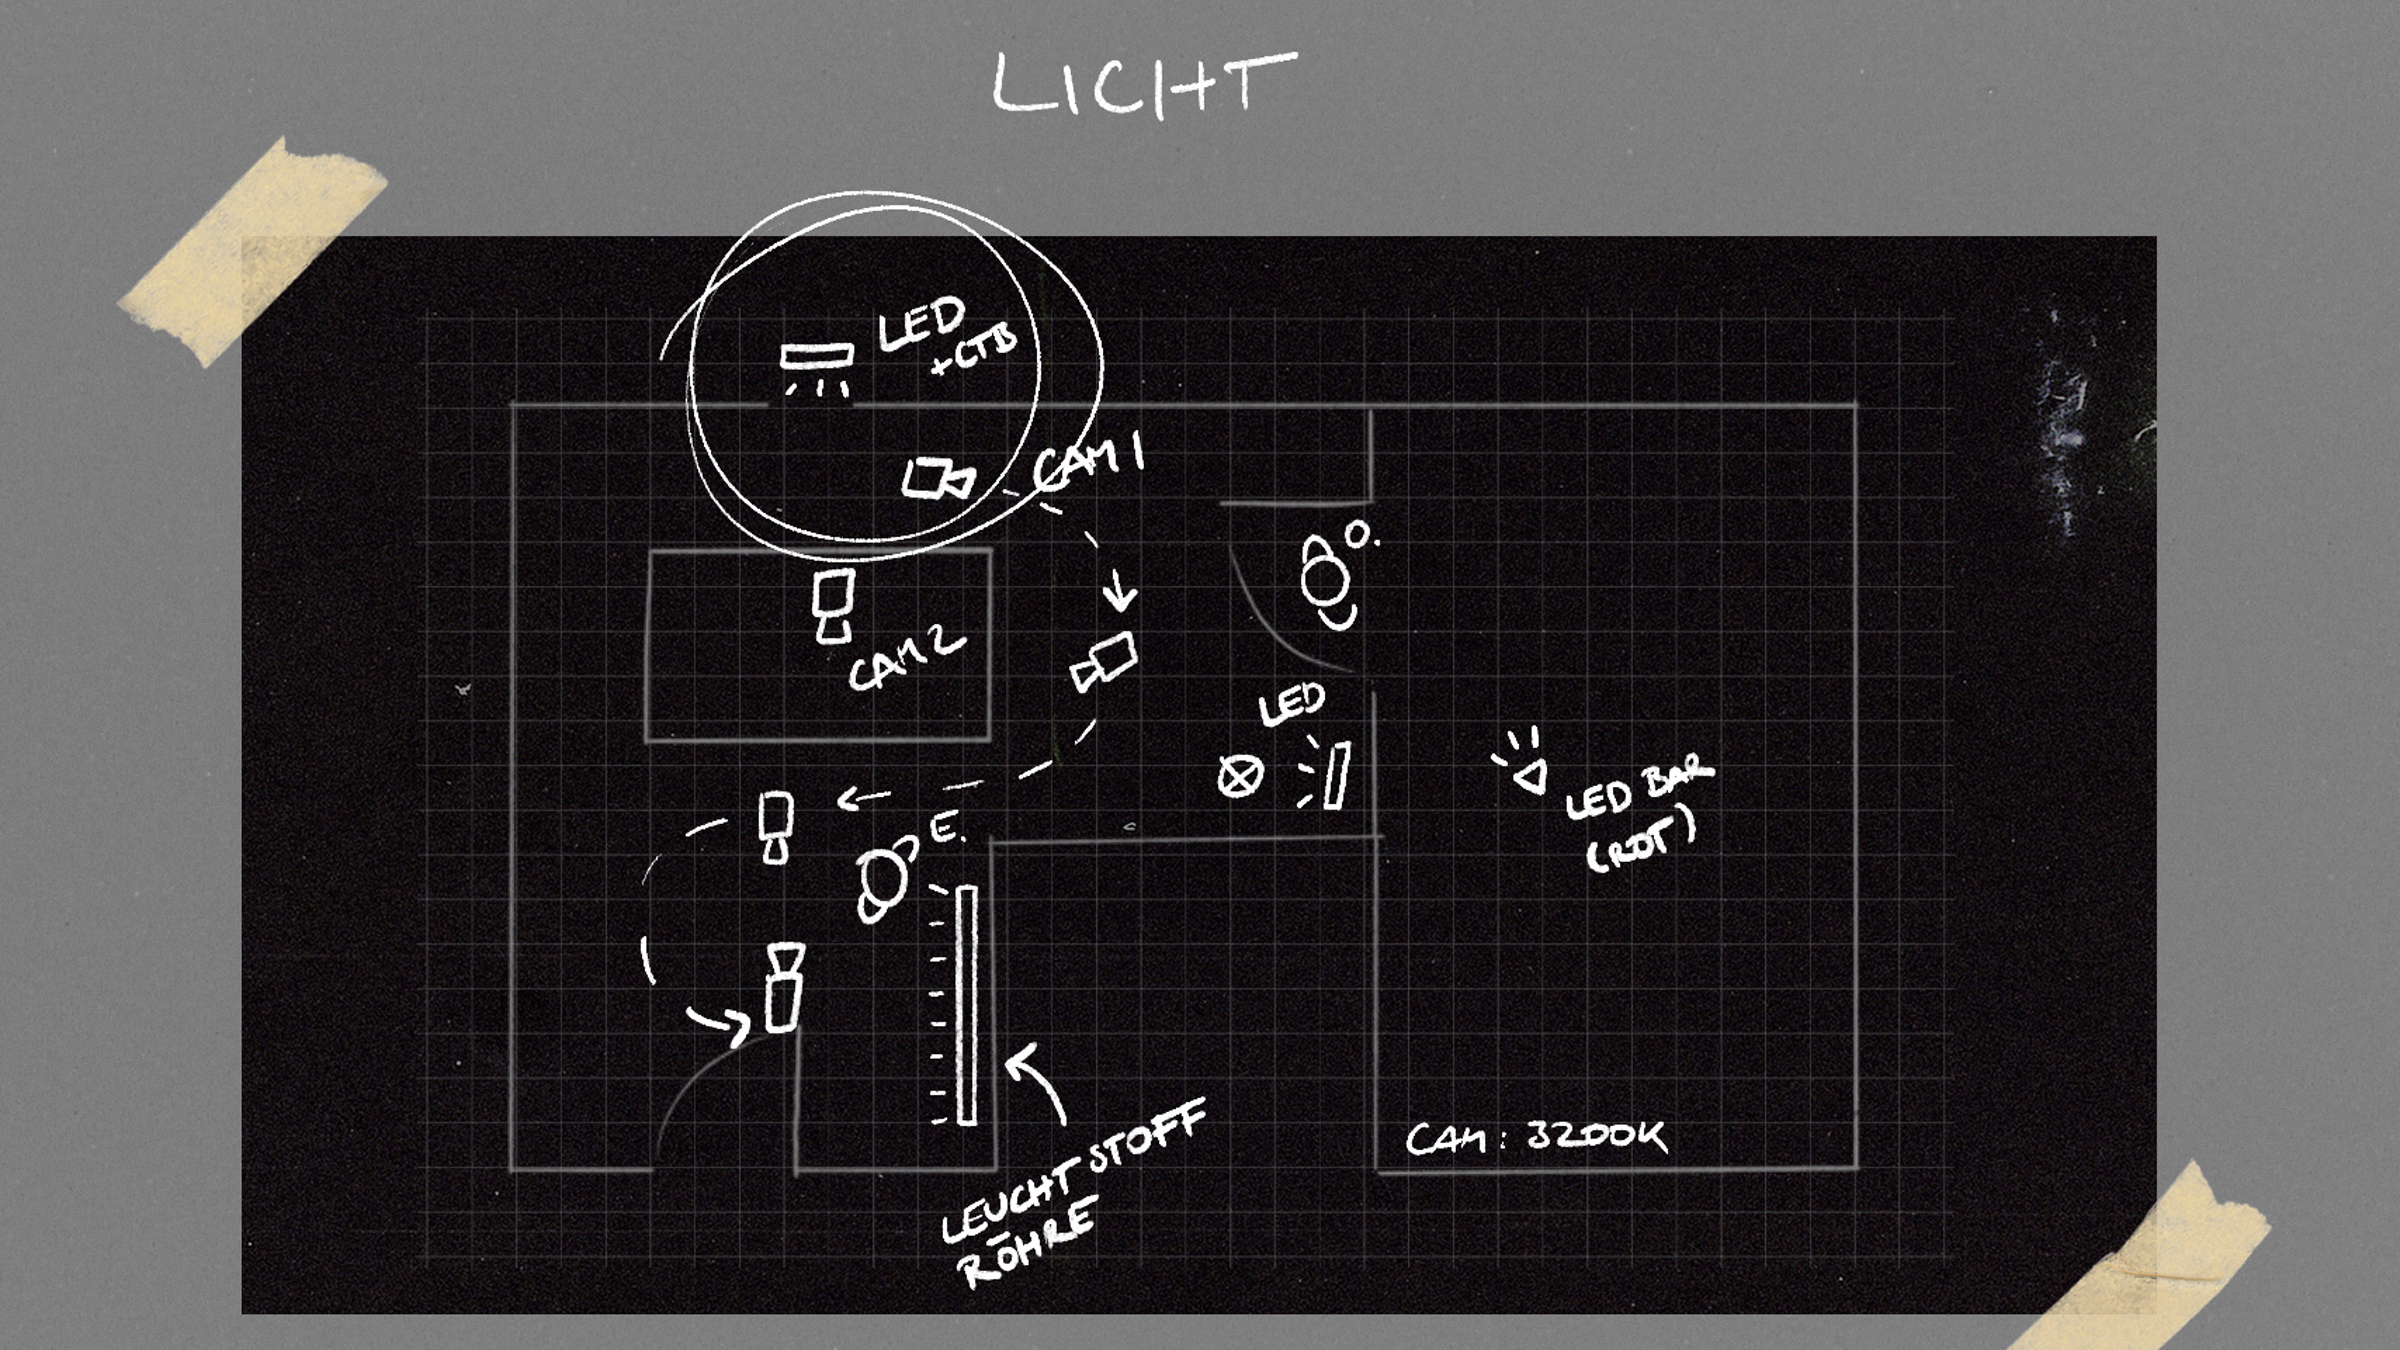 LICHT
LED
+CTB
CAM 1
O.
CAM 2
LED
LED BAR
(ROT)
E.
CAM: 3200K
LEUCHTSTOFF
RÖHRE